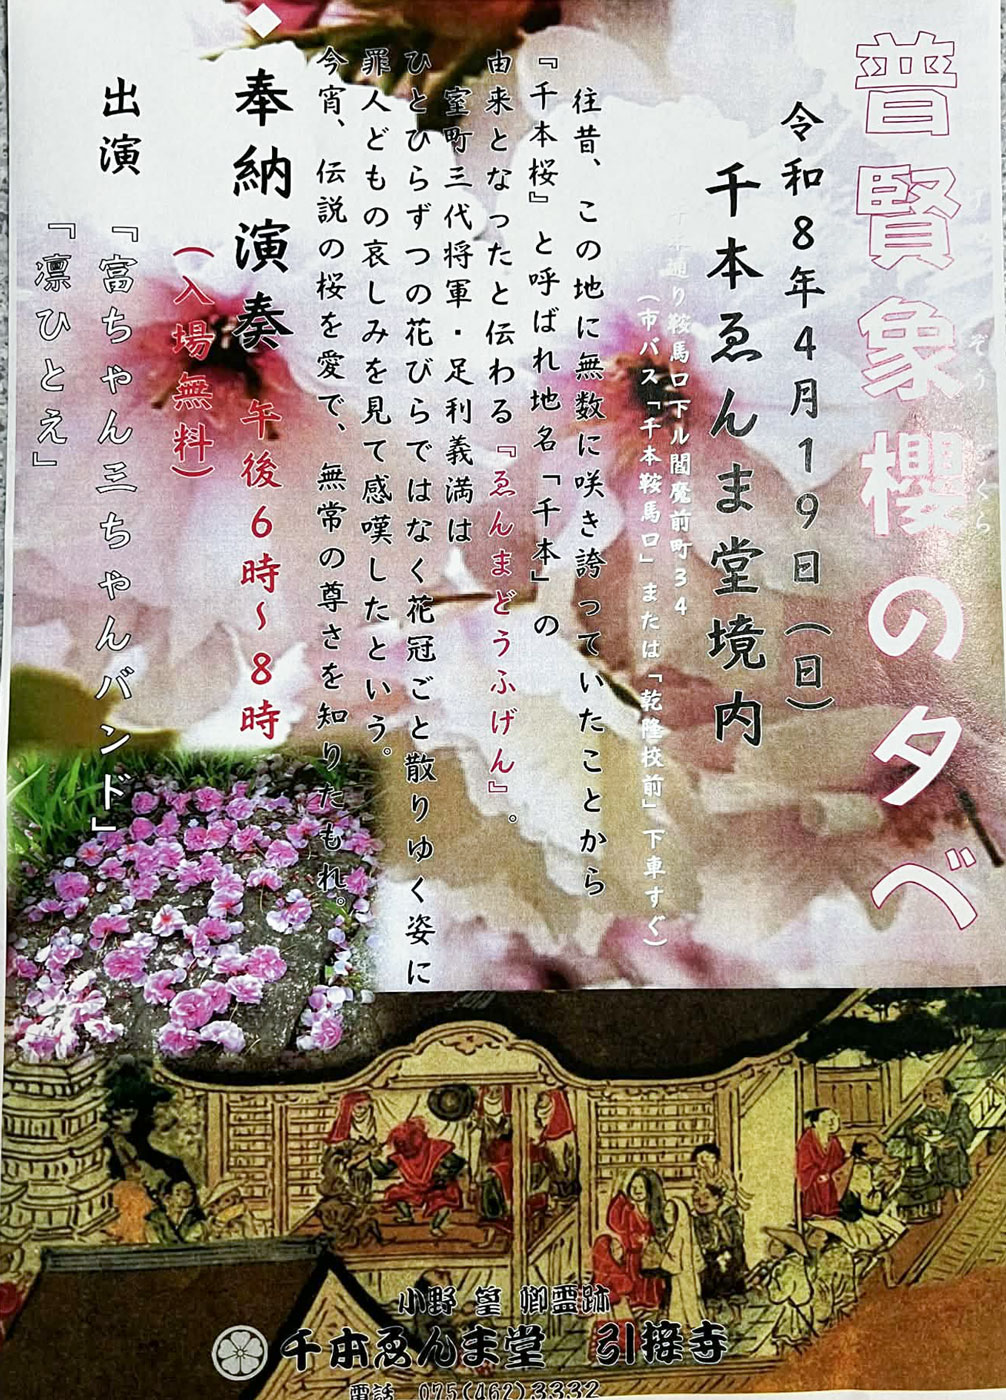 普賢象櫻のタベ
ぞう
くら
令和8年4月19日(日)
千本ゑんま堂境内
通り鞍馬口下ル閻魔前町34
(市バス「千本鞍馬口」または「乾隆校前」下車すぐ)
往昔、この地に無数に咲き誇っていたことから
『千本桜』と呼ばれ地名「千本」の
由来となったと伝わる『ゑんまどうふげん』。
室町三代将軍・足利義満は
ひとひらずつの花びらではなく花冠ごと散りゆく姿に
罪人どもの哀しみを見て感嘆したという。
今宵、伝説の桜を愛で、無常の尊さを知りたもれ。
◆奉納演奏 午後6時~8時
(入場無料)
出演 『富ちゃん三ちゃんバンド』
『凛ひとえ』
小野 篁 卿霊跡
千本ゑんま堂 引接寺
電話 075(462)3332